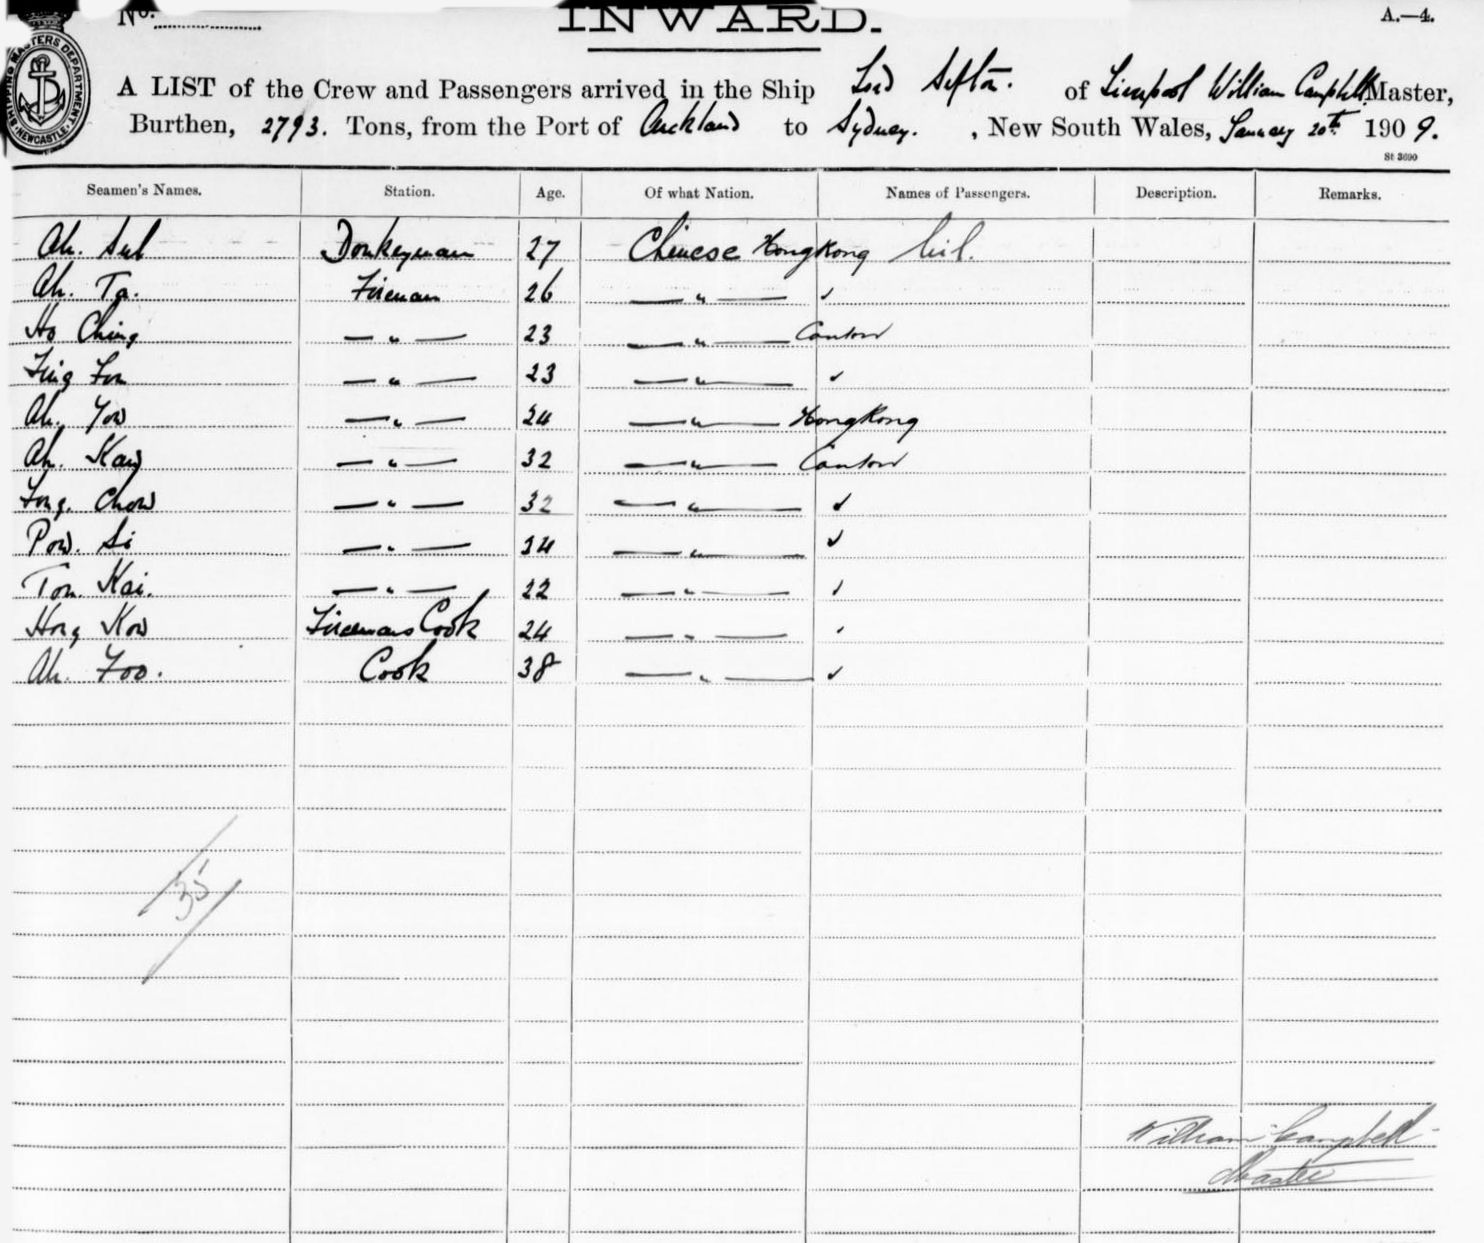 No.
INWARD.
A.—4.
SHIPPING MASTERS DEPARTMENT NEWCASTLE
A LIST of the Crew and Passengers arrived in the Ship Lord Sefton. of Liverpool William Campbell Master,
Burthen, 2793. Tons, from the Port of Auckland to Sydney. , New South Wales, January 20th 1909.
St 3690
Seamen's Names. Station. Age. Of what Nation. Names of Passengers. Description. Remarks.
Ah. Sul Donkeyman 27 Chinese Hong Kong Nil.
Ah. Ta. Fireman 26 — " — ✓
Ho Ching — " — 23 — " — Canton
Fing — " — 23 — " — ✓
Ah. Yow — " — 24 — " — Hong Kong
Ah. Kaw — " — 32 — " — Canton
Fong. Chow — " — 32 — " — ✓
Pow. Si — " — 34 — " — ✓
Ton. Kai. — " — 22 — " — ✓
Hong Kow Firemans Cook 24 — " — ✓
Ah. Foo. Cook 38 — " — ✓
35
William Campbell
Master